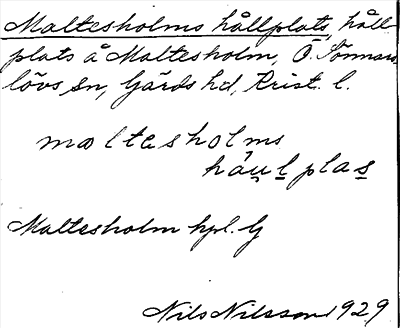 Maltesholms hållplats, håll
plats å Maltesholm, Ö. Sönnars
lövs sn, Gärds hd, Krist. l.
maltesholms
håu̯l plas
Maltesholm hpl. G
Nils Nilsson 1929